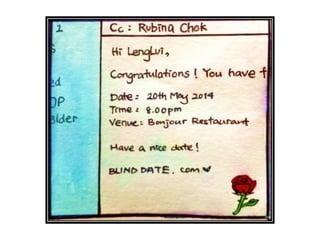 1
Cc : Rubina Chok
Hi LengLui,
Congratulations! You have f
ed
Date : 20th May 2014
OP
Time : 8.00pm
older
Venue: Bonjour Restaurant
Have a nice date!
BLINDDATE.com